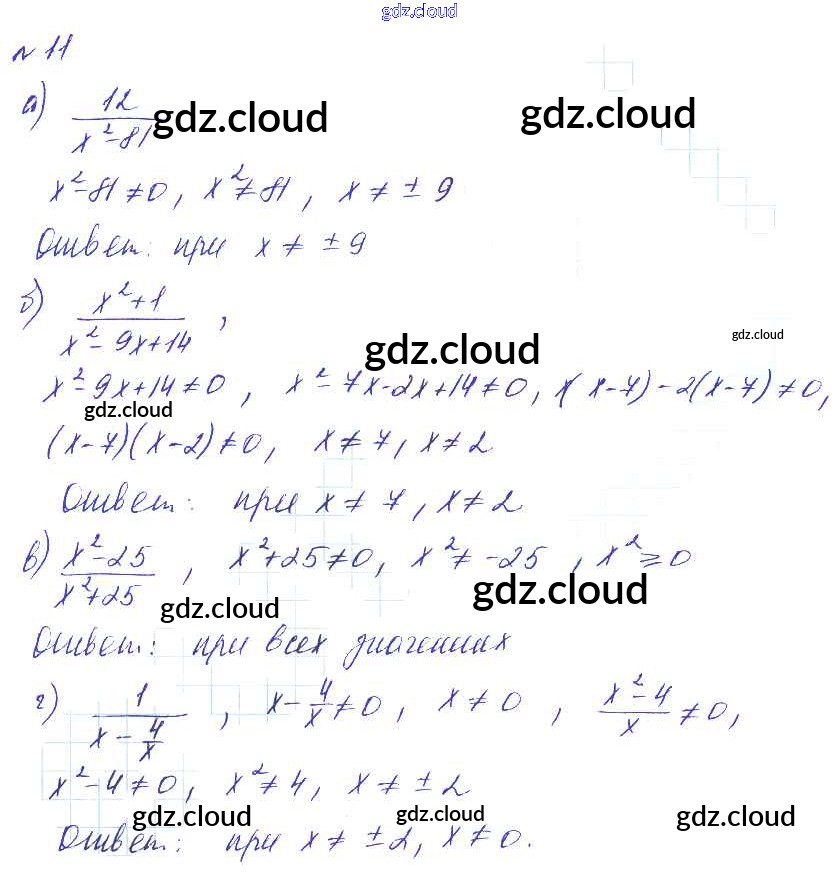 gdz.cloud
№ 11
а) 12 / (x² - 81) gdz.cloud gdz.cloud
x² - 81 ≠ 0, x² ≠ 81, x ≠ ± 9
Ответ: при x ≠ ± 9
б) (x² + 1) / (x² - 9x + 14) , gdz.cloud gdz.cloud
x² - 9x + 14 ≠ 0, x² - 7x - 2x + 14 ≠ 0, x(x - 7) - 2(x - 7) ≠ 0,
gdz.cloud
(x - 7)(x - 2) ≠ 0, x ≠ 7, x ≠ 2
Ответ: при x ≠ 7, x ≠ 2
в) (x² - 25) / (x² + 25) , x² + 25 ≠ 0, x² ≠ -25, x² ≥ 0
gdz.cloud gdz.cloud
Ответ: при всех значениях
г) 1 / (x - 4/x) , x - 4/x ≠ 0, x ≠ 0, (x² - 4) / x ≠ 0,
x² - 4 ≠ 0, x² ≠ 4, x ≠ ± 2
gdz.cloud gdz.cloud gdz.cloud
Ответ: при x ≠ ± 2, x ≠ 0.